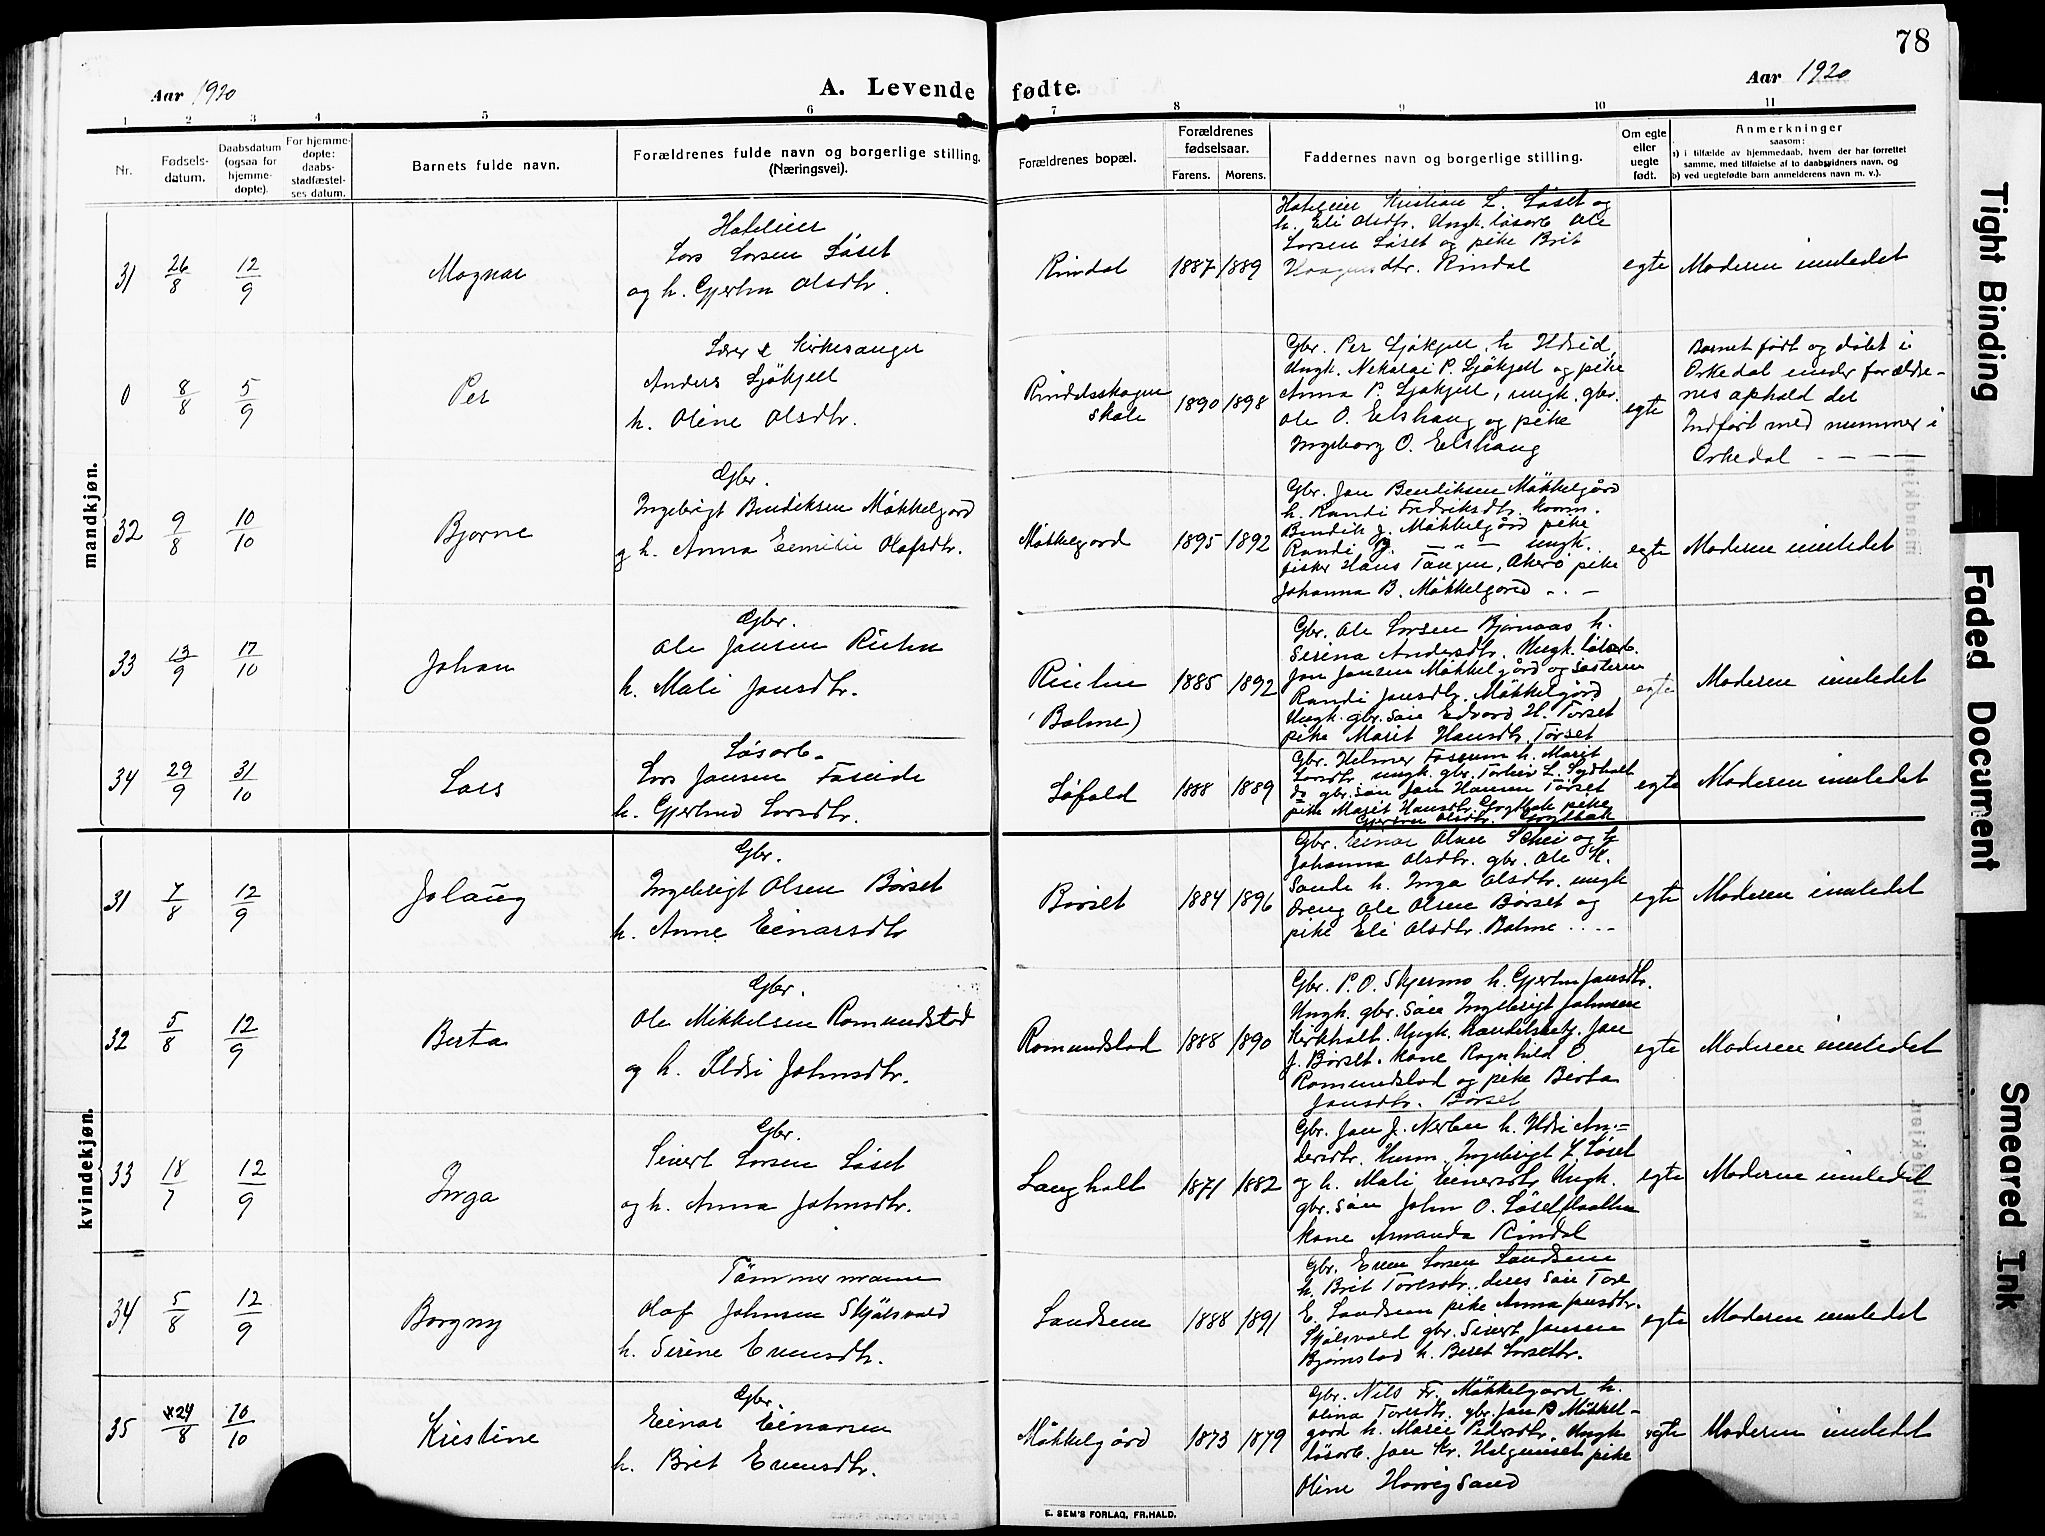 78
Aar 1920
A. Levende fødte.
Aar 1920
1 2 3 4 5 6 7 8 9 10 11
Nr.
Fødsels-
datum.
Daabsdatum
(ogsaa for
hjemme-
døpte).
For hjemme-
døpte:
daabs-
stadfæstel-
ses datum.
Barnets fulde navn.
Forældrenes fulde navn og borgerlige stilling.
(Næringsvei).
Forældrenes bopæl.
Forældrenes
fødselsaar.
Farens. Morens.
Faddernes navn og borgerlige stilling.
Om egte
eller
uegte
født.
Anmerkninger
saasom:
a) i tilfælde av hjemmedaab, hvem der har forrettet
samme, med tilføielse af to daabsvidners navn, og
b) ved uegtefødte barn anmelderens navn m. v.).
mandkjøn.
31 26/8 12/9 Magnar
Hoteleier
Lars Larsen Løset
og h. Gjertru Olsdtr.
Rindal 1887 1889
Hoteleier Kristian L. Løset og
h. Eli Olsdtr. Ungk. løsarb. Ole
Larsen Løset og pike Brit
Haagensdtr. Rindal
egte Moderen innledet
0 8/8 5/9 Per
Lærer & Kirkesanger
Anders Sjökjell
h. Oline Olsdtr.
Rindalsskogen
skole
1890 1898
Gbr. Per Sjökjell, h. Ildrid,
Ungk. Nikolai P. Sjökjell og pike
Anna P. Sjökjell, ungk. gbr.
Ole O. Elshaug og pike
Ingeborg O. Elshaug
egte
Barnet født og døbt i
Orkedal under forældre-
nes ophold der
Indført med nummer i
Orkedal — — —
32 9/8 10/10 Bjarne
Gbr.
Ingebrigt Bendiksen Møkkelgård
g h. Anna Eemilie Olafsdtr.
Møkkelgård 1895 1892
Gbr. Jon Bendiksen Møkkelgård
h. Randi Fredriksdtr. komm.
Bendik J. Møkkelgård pike
Randi J. — " — ungk.
fisker Hans Tangen, Akerø pike
Johanna B. Møkkelgård - . -
egte Moderen innledet
33 13/9 17/10 Johan
Gbr.
Ole Jonsen
h. Mali Jonsdtr.
(Bolme)
1885 1892
Gbr. Ole Larsen Bjørnaas h.
Serina Andersdtr. Ungk. løsarb.
Jon Jonsen Møkkelgård og søsteren
Randi Jonsdtr. Møkkelgård
Ungk. gbr. søn Edvard H. Torset
pike Marit Hansdtr. Torset
egte Moderen innledet
34 29/9 31/10 Lars
Løsarb.
Lars Jonsen
h. Gjertrud Larsdtr.
Løfald 1888 1889
Gbr. Helmer Foseum h. Marit
Larsdtr. ungk. gbr. Torleiv L. Sydhalt
do gbr. søn Jon Hansen Torset
pike Marit Hansdtr. pike
Olsdtr.
egte Moderen innledet
kvindekjøn.
31 7/8 12/9 Jolaug
Gbr.
Ingebrigt Olsen Børset
h. Anne Einarsdtr
Børset 1884 1896
Gbr. Einar Olsen og h
Johanna Olsdtr. gbr. Ole K.
Sande h. Inga Olsdtr. ungk
dreng Ole Olsen Børset og
pike Eli Olsdtr. Bolme . . - -
egte Moderen innledet
32 5/8 12/9 Berta
Gbr.
Ole Mikkelsen Romundstad
og h. Ildri Johnsdtr.
Romundstad 1888 1890
Gbr. P. O. Skjermo h. Gjertru Jonsdtr.
Ungk. gbr. søn Ingebrigt Johnsen
Kirkholt. Ungk. handelsbetj. Jon
J. Børset. kone Ragnhild O.
Romundstad og pike Berta
Jonsdtr. Børset
egte Moderen innledet
33 18/7 12/9 Inga
Gbr.
Sivert Larsen Løset
og h. Anna Johnsdtr.
Langholt 1871 1882
Gbr. Jon J. Nerlen h. Ildri An-
dersdtr. Husm. Ingebrigt L. Løset
og h. Mali Einersdtr Ungk.
gbr. søn John O. Løsetflaatten
kone Amanda Rindal
egte Moderen innledet
34 5/8 12/9 Borgny
Tömmermann
Olaf Johnsen Skjølsvold
h. Serine Evensdtr.
Landsem 1888 1891
Gbr. Even Larsen Landsem
h. Brit Toresdtr. deres søn Tore
E. Landsem pike Anna Jonsdtr.
Skjølsvold gbr. Sivert Jonsen
Bjørnstad h. Beret Larsdtr.
egte Moderen innledet
35 *24/8 10/10 Kristine
Gbr.
Einar Einarsen
h. Brit Evensdtr.
Møkkelgård 1873 1879
Gbr. Nils Fr. Møkkelgård h.
Olina Toresdtr. gbr. Jon B Møkkel-
gård h. Marei Pedersdtr. Ungk
løsarb. Jon Kr. Helgemset pike
Oline Harvigsand
egte Moderen innledet
E. SEM'S FORLAG, FR.HALD.
Tight Binding
Faded Document
Smeared Ink